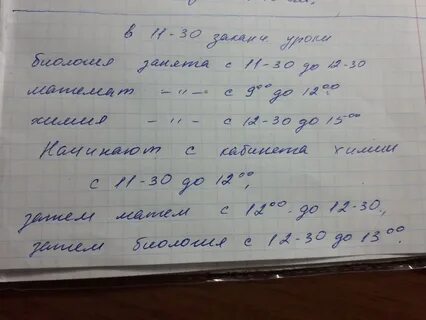 в 11-30 законч уроки
биология занята с 11-30 до 12-30
математ -"- с 9⁰⁰ до 12⁰⁰,
химия -"- с 12-30 до 15⁰⁰
Начинают с кабинета химии
с 11-30 до 12⁰⁰,
затем матем с 12⁰⁰ до 12-30,
затем биология с 12-30 до 13⁰⁰.